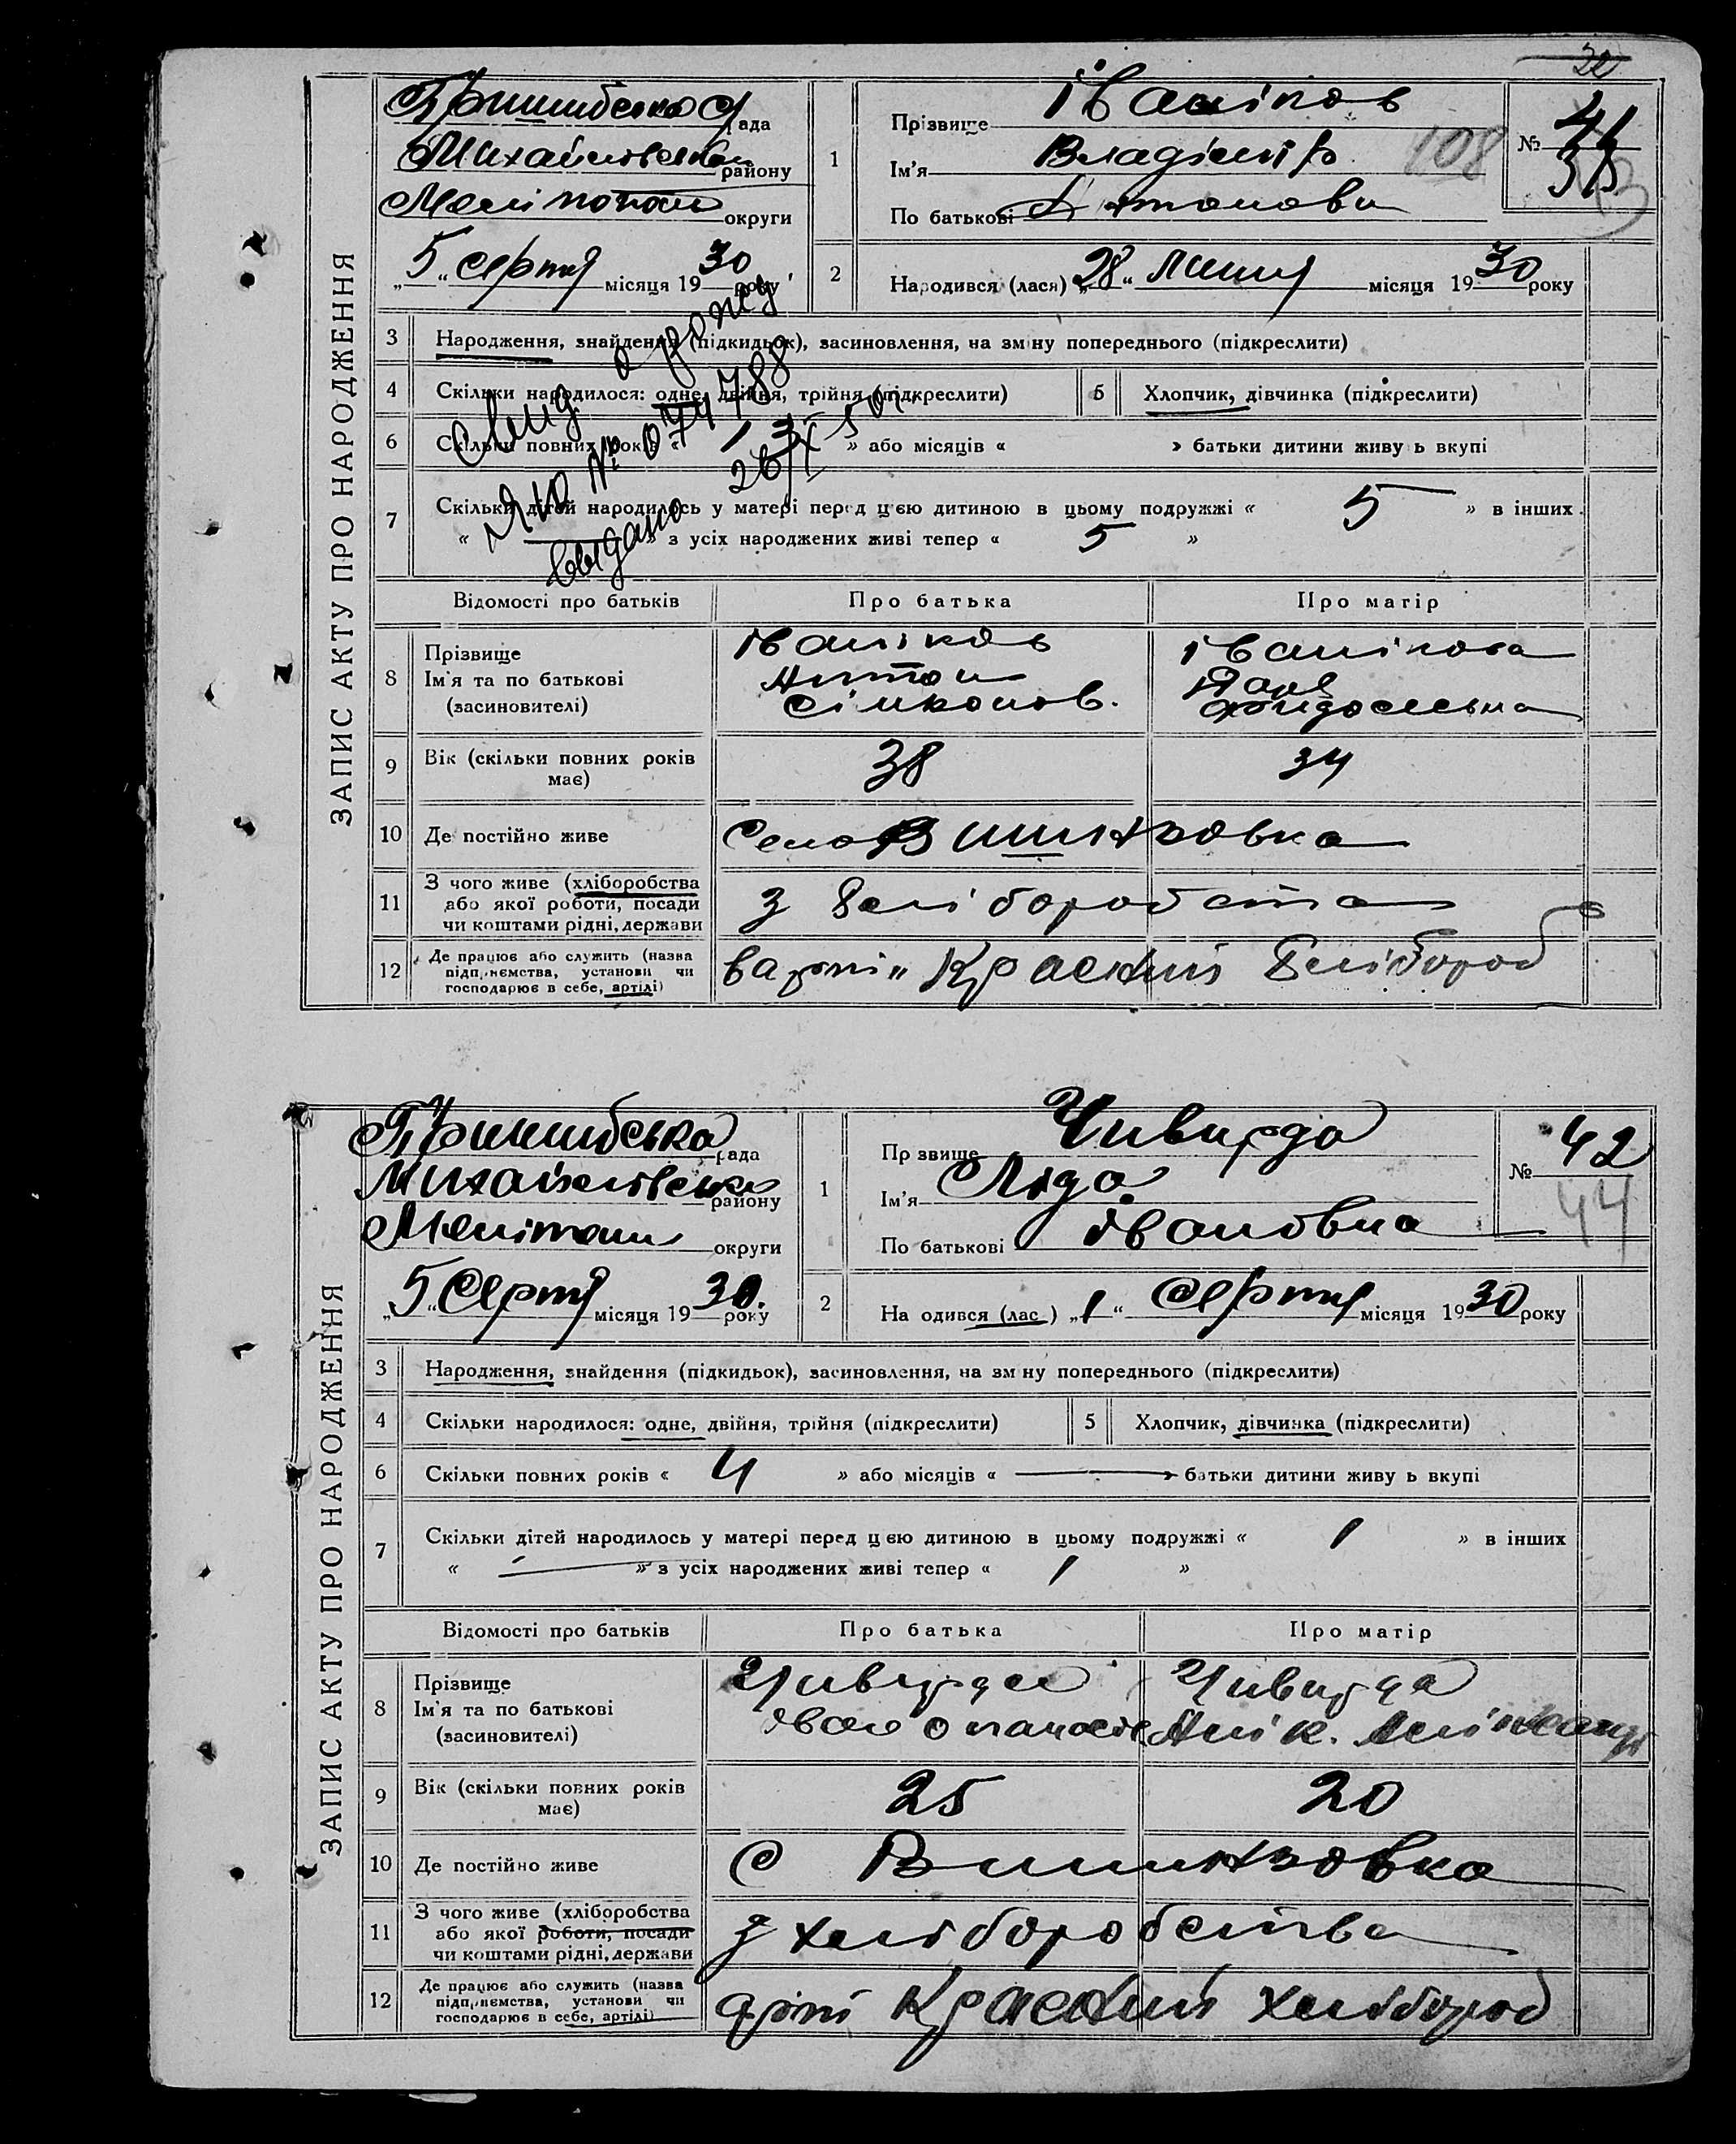 22
ЗАПИС АКТУ ПРО НАРОДЖЕННЯ
Пришибська рада
району
округи
5 „ серпня місяця 1930 року
1
Прізвище
Ім'я Владімір
По батькові Антонови
108
№ 41
2
Народився (лася) „28“ липня місяця 1930 року
3 Народження, знайдення (підкидьок), засиновлення, на зміну попереднього (підкреслити)
4 Скільки народилося: одне, двійня, трійня (підкреслити)
5 Хлопчик, дівчинка (підкреслити)
6 Скільки повних років « 13 » або місяців « » батьки дитини живуть вкупі
7 Скільки дітей народилось у матері перед цією дитиною в цьому подружжі « 5 » в інших
« — » з усіх народжених живі тепер « 5 »
Свид о рожд
ЯЮ № 074788
выдано 26/IX 50г.
Відомості про батьків Про батька Про матір
8 Прізвище
Ім'я та по батькові
(засиновителі)
Антон
9 Вік (скільки повних років має) 38 34
10 Де постійно живе Село
11 З чого живе (хліборобства
або якої роботи, посади
чи коштами рідні, держави
з
12 Де працює або служить (назва
підприємства, установи чи
господарює в себе, артілі)
Красний
ЗАПИС АКТУ ПРО НАРОДЖЕННЯ
Пришибська рада
району
округи
„5“ Серпня місяця 1930. року
1
Прізвище Чивирда
Ім'я Ліда
По батькові Івановна
№ 42
44
2
Народився (лася) „1“ серпня місяця 1930 року
3 Народження, знайдення (підкидьок), засиновлення, на зміну попереднього (підкреслити)
4 Скільки народилося: одне, двійня, трійня (підкреслити)
5 Хлопчик, дівчинка (підкреслити)
6 Скільки повних років « 4 » або місяців « — » батьки дитини живуть вкупі
7 Скільки дітей народилось у матері перед цією дитиною в цьому подружжі « 1 » в інших
« — » з усіх народжених живі тепер « 1 »
Відомості про батьків Про батька Про матір
8 Прізвище
Ім'я та по батькові
(засиновителі)
Чивирда Чивирда
9 Вік (скільки повних років має) 25 20
10 Де постійно живе с
11 З чого живе (хліборобства
або якої роботи, посади
чи коштами рідні, держави
з хліборобства
12 Де працює або служить (назва
підприємства, установи чи
господарює в себе, артілі)
Красний хлібороб